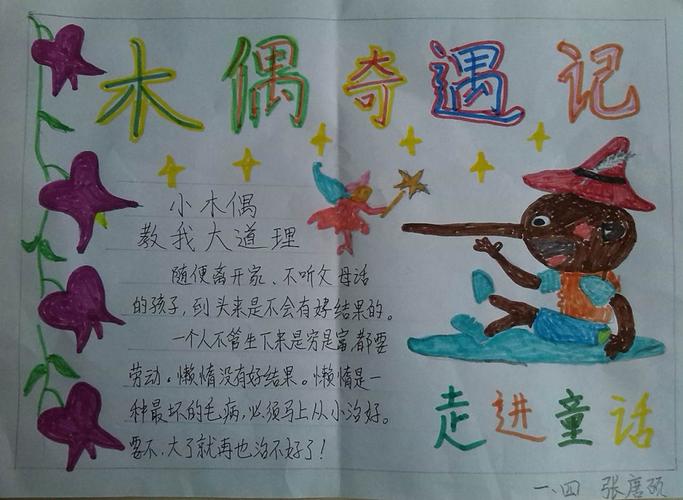 木偶奇遇记
小木偶
教我大道理
随便离开家、不听父母话
的孩子,到头来是不会有好结果的。
一个人不管生下来是穷是富,都要
劳动。懒惰没有好结果。懒惰是一
种最坏的毛病,必须马上从小治好。
要不,大了就再也治不好了!
走进童话
一、四 张唐硕